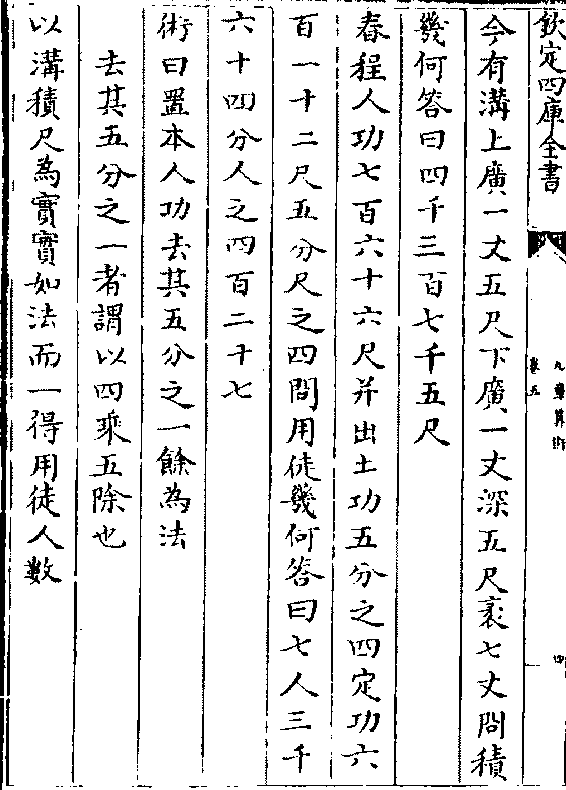 欽定四庫全書
九章算術
卷五
四
今有溝上廣一丈五尺下廣一丈深五尺袤七丈問積
幾何答曰四千三百七千五尺
春程人功七百六十六尺并出土功五分之四定功六
百一十二尺五分尺之四問用徒幾何答曰七人三千
六十四分人之四百二十七
術曰置本人功去其五分之一餘為法
去其五分之一者謂以四乘五除也
以溝積尺為實實如法而一得用徒人數